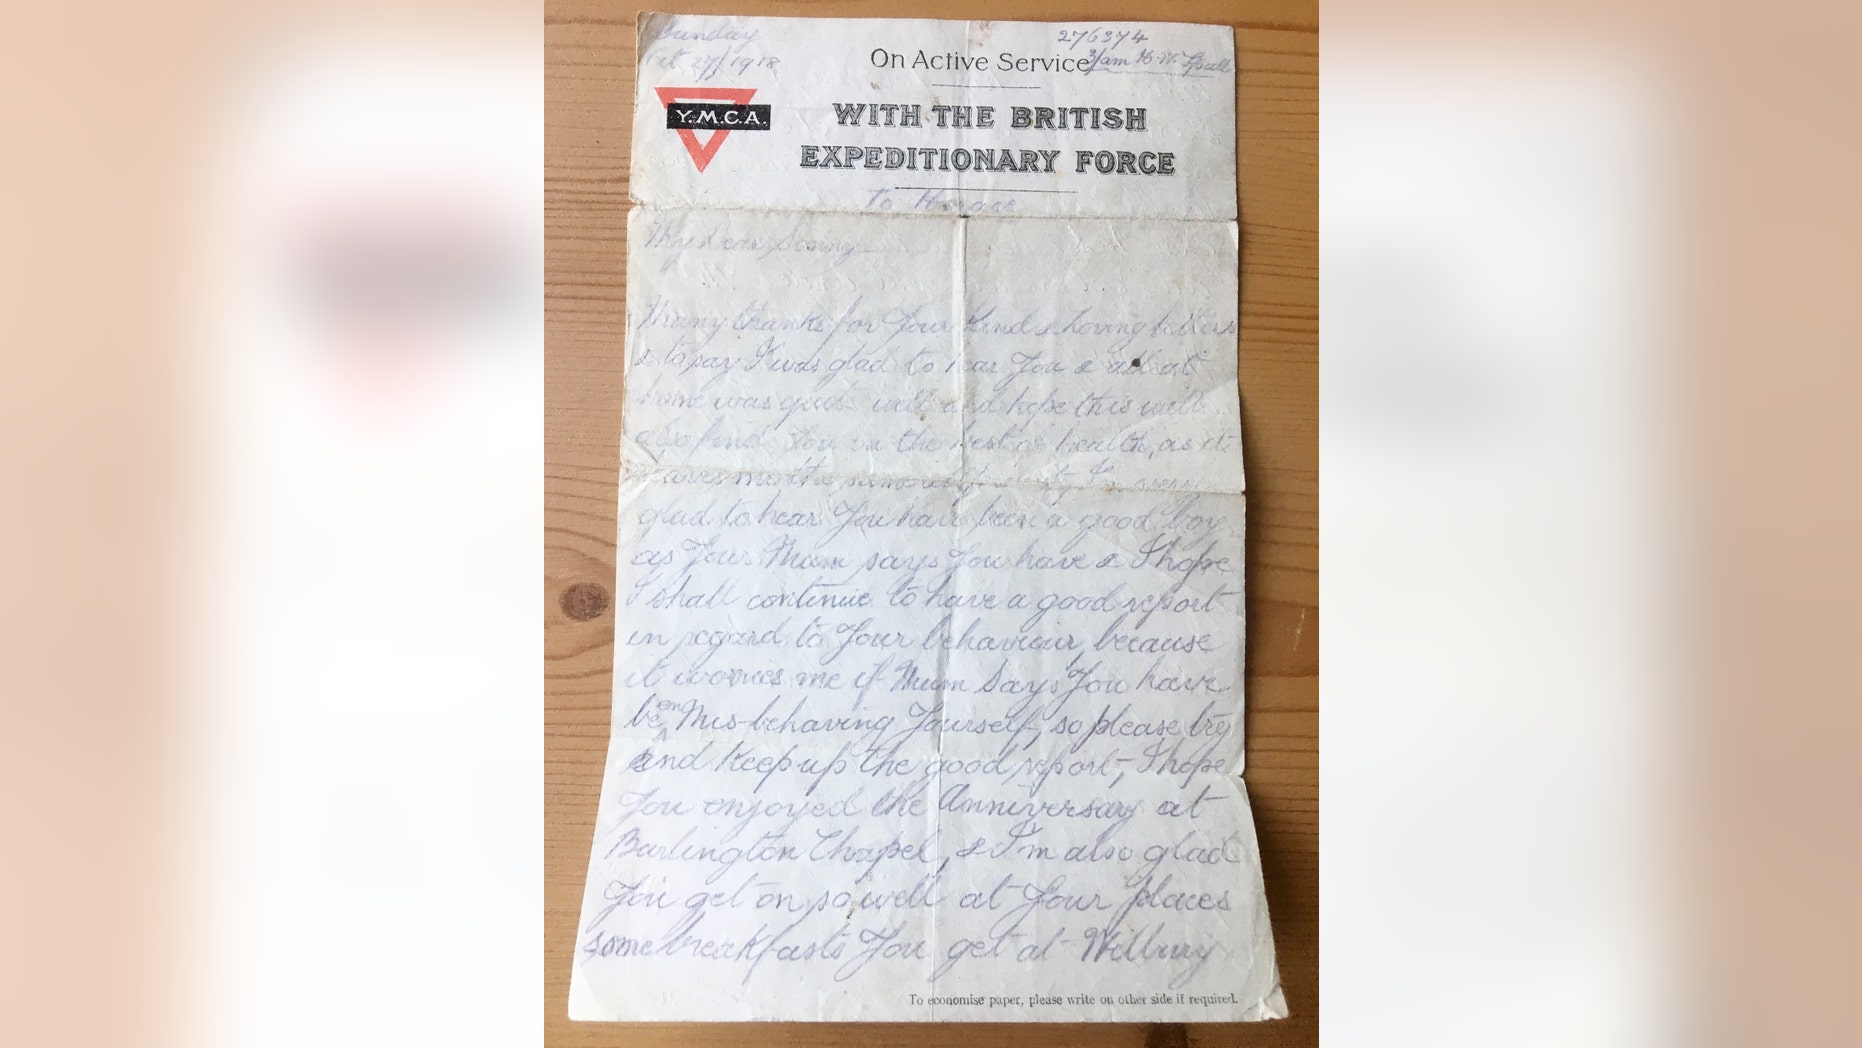 Sunday
Oct 27/1918
276374
On Active Service
Y.M.C.A.
WITH THE BRITISH
EXPEDITIONARY FORCE
To Horace
My dear Sonny
Many thanks for Your Kind & Loving letters
& to say I was glad to hear You & all at
home was quite well and hope this will
also find You in the best of health, as it
leaves me the
glad to hear You have been a good boy
as Your Mum says You have & I hope
I shall continue to have a good report
in regard to Your behaviour, because
it worries me if Mum Says You have
been Mis-behaving Yourself, so please try
and Keep up the good report, I hope
You enjoyed the Anniversary at
Burlington Chapel, & I'm also glad
You get on so well at Your places
some breakfasts You get at Wilbury
To economise paper, please write on other side if required.